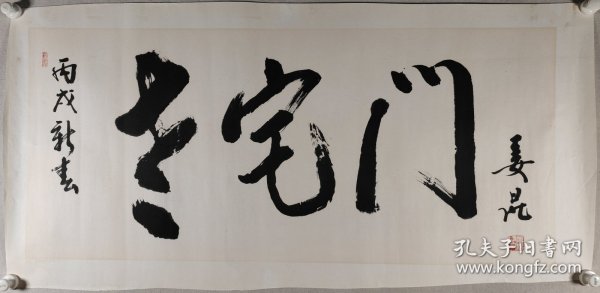 丙戌新春
老宅门
姜昆
孔夫子旧书网
www.kongfz.com